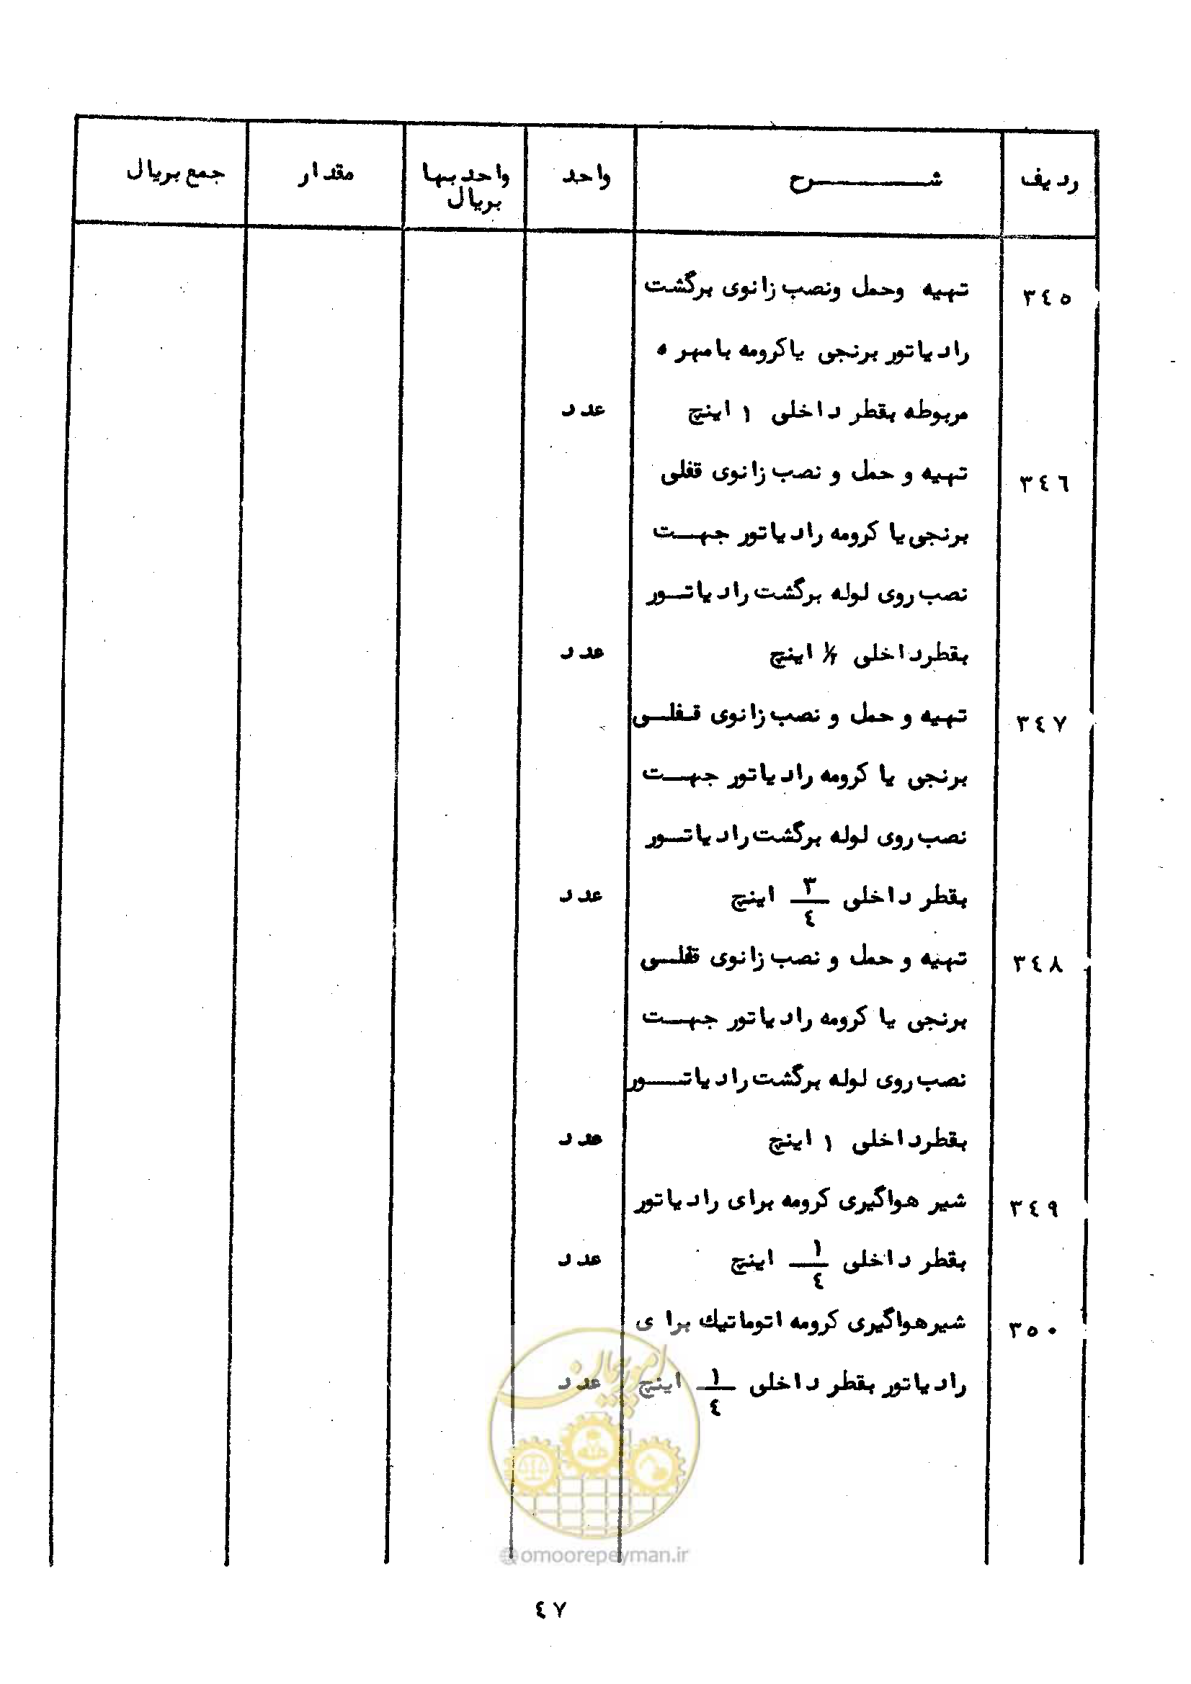 ردیف شرح واحد واحد بها بریال مقدار جمع بریال
٣٤٥ تهیه وحمل ونصب زانوی برگشت
رادیاتور برنجی یاکرومه بامهره
مربوطه بقطر داخلی ١ اینچ عدد
٣٤٦ تهیه و حمل و نصب زانوی قفلی
برنجی یا کرومه رادیاتور جهت
نصب روی لوله برگشت رادیاتور
بقطرداخلی ½ اینچ عدد
٣٤٧ تهیه و حمل و نصب زانوی قفلی
برنجی یا کرومه رادیاتور جهت
نصب روی لوله برگشت رادیاتور
بقطر داخلی ٣/٤ اینچ عدد
٣٤٨ تهیه و حمل و نصب زانوی قفلی
برنجی یا کرومه رادیاتور جهت
نصب روی لوله برگشت رادیاتور
بقطرداخلی ١ اینچ عدد
٣٤٩ شیر هواگیری کرومه برای رادیاتور
بقطر داخلی ١/٤ اینچ عدد
٣٥٠ شیرهواگیری کرومه اتوماتیك برای
رادیاتور بقطر داخلی ١/٤ اینچ عدد
امور پیمان
@omoorepeyman.ir
٤٧